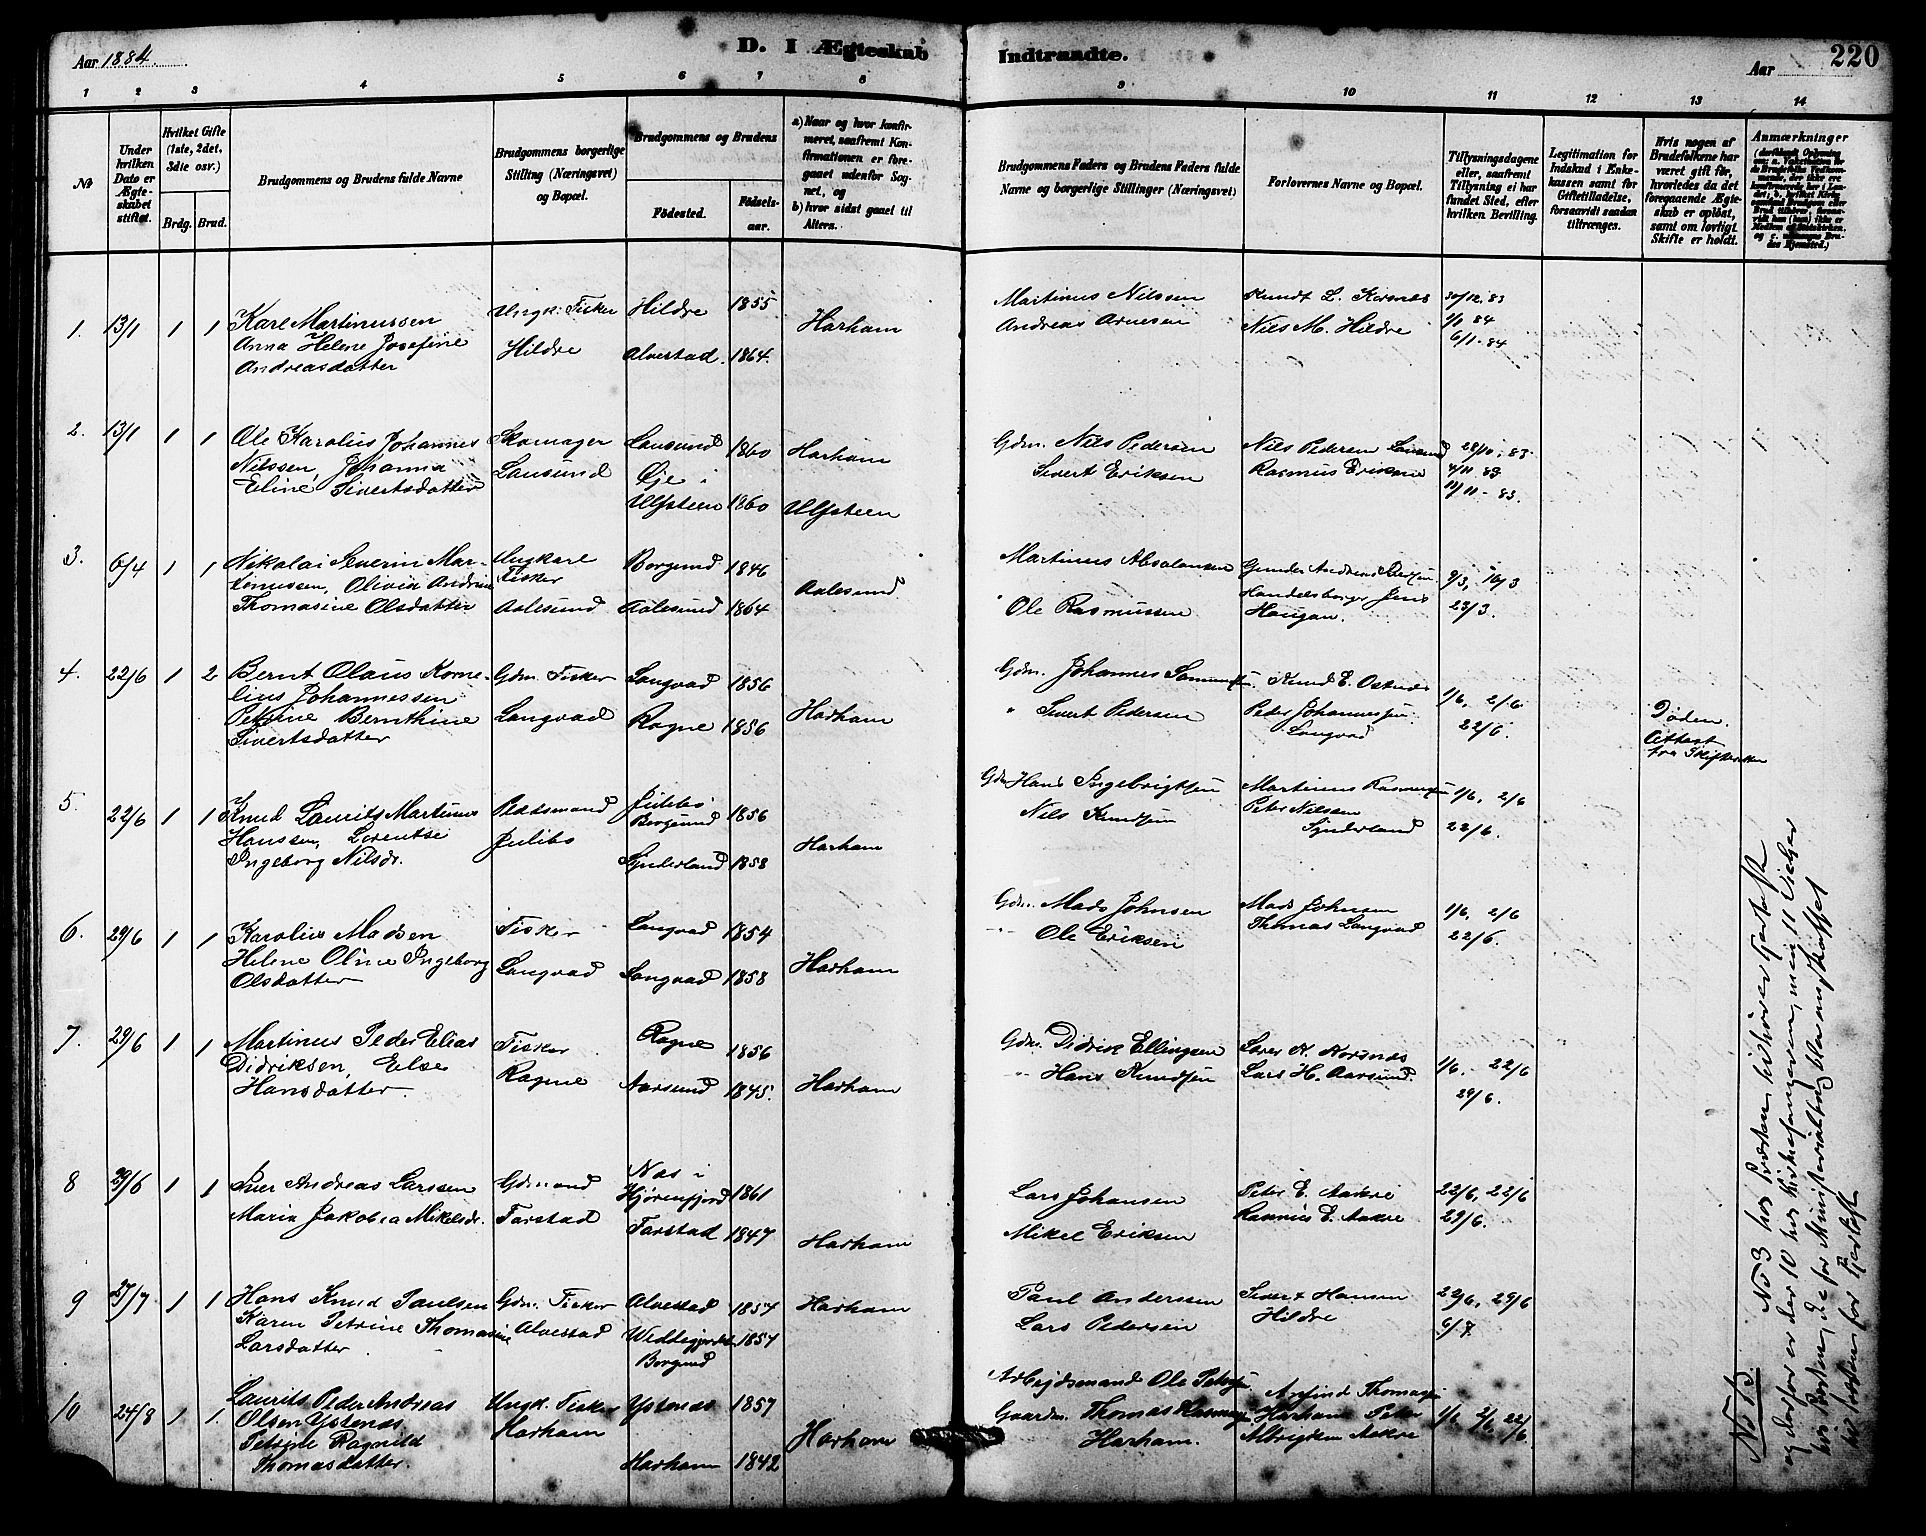 Aar 1884.
D. I Ægteskab
Indtraadte.
Aar
220
1 2 3 4 5 6 7 8 9 10 11 12 13 14
№
Under hvilken Dato er Ægteskabet stiftet.
Hvilket Gifte (1ste, 2det, 3die osv.)
Brdg. Brud.
Brudgommens og Brudens fulde Navne
Brudgommens borgerlige Stilling (Næringsvei) og Bopæl.
Brudgommens og Brudens
Födested.
Födselsaar.
a) Naar og hvor konfirmeret, saafremt Konfirmationen er foregaaet udenfor Sognet, og
b) hvor sidst gaaet til Alters.
Brudgommens Faders og Brudens Faders fulde Navne og borgerlige Stillinger (Næringsvei)
Forlovernes Navne og Bopæl.
Tillysningsdagene eller, saafremt Tillysning ei har fundet Sted, efter hvilken Bevilling.
Legitimation for Indskud i Enkekassen samt for Giftetilladelse, forsaavidt saadan tiltrænges.
Hvis nogen af Brudefolkene har været gift før, hvorledes da det foregaaende Ægteskab er opløst, samt om lovligt Skifte er holdt.
Anmærkninger
1. 13/1 1 1 Karl Martinussen Ungk. Fisker Hildre 1855 Harham Martinus Nilssen Knudt L. Korsnes 30/12 83
Anna Helene Josefine Hildre Alvestad 1864 Andreas Arnesen Nils M. Hildre 1/1 84
Andreasdatter 6/1 - 84
2. 13/1 1 1 Ole Karolius Johannes Skomager Lausund 1860 Harham Gdm. Nils Pedersen Nils Pedersen Lausund 28/10 83
Nilssen, Johanna Lausund Øje i Sivert Eriksen Rasmus Eriksen 4/11 83
Eline Sivertsdatter Ulfsteen 1860 Ulfsteen 11/11 - 83.
3. 6/4 1 1 Nikolai Severin Mar- Ungkarl Borgund 1846 Aalesund Martinus Absalonsen Gunder Andreas 9/3, 16/3
tinussen, Olivia Andrine Fisker Handelsborger Jens
Thomasine Olsdatter Aalesund Aalesund 1864 Ole Rasmussen Haugan. 23/3
4. 22/6 1 2 Bernt Olaus Korne- Gdm. Fisker Longvad 1856 Harham Gdm. Johannes Knud E. Ostnes 1/6, 2/6
lius Johannessen
Petrine Bernthine Longvad Rogne 1856 " Sivert Pedersen Peter Johannessen 22/6. Døden.
Sivertsdatter Longvad Attest
fra Skifteretten
5. 22/6 1 1 Knud Laurits Martinus Pladsmand Julebo Borgund 1856 Harham Gdm Hans Ingebrigtsen Martinus Rasmussen 1/6, 2/6
Hanssen, Lorentse Julebo Nils Knudsen Peter Nilssen
Ingeborg Nilsdr. Synderland 1858 Synderland 22/6.
6. 29/6 1 1 Karolius Madsen Fisker Longvad 1854 Harham Gdm. Mads Johnsen Mads Johnsen 1/6, 2/6
Helene Oline Ingeborg Longvad Longvad 1858 " Ole Eriksen Thomas Longvad 22/6.
Olsdatter
7. 29/6 1 1 Martinus Peder Elias Fisker Rogne 1856 Harham Gdm. Didrik Ellingsen Korsnes 1/6. - 22/6
Didriksen, Else Rogne Aarsund 1845. " Hans Knudsen Lars H. Aarsund. 29/6.
Hansdatter.
8 29/6 1 1 Andreas Larssen Gdmand Nas i Hjörenfjord 1861 Harham Lars Johansen Peter E. Aakre 22/6, 22/6
Maria Jakobia Mikelsdr. Farstad Farstad 1847 Mikel Eriksen Rasmus E. Aakre 29/6.
9 27/7 1 1 Hans Knud Paulsen Gdm. Fisker Alvestad 1857 Harham Paul Anderssen Sivert Hansen 22/6, 29/6
Karen Petrine Thomasine Alvestad 1857 Lars Pedersen Hildre 6/7.
Larsdatter Borgund
10 24/8 1 1 Laurits Peder Andreas Ungk. Fisker Ystenes 1857 Harham Arbejdsmand Ole
Olsen Ystenes Harham Gaardm. Thomas Harham Peter 1/6 2/6 22/6
Petrine Ragnild Harham. Aakre
Thomasdatter. Harham 1842
NB. No 3 hos Præsten, hidhörer Fjærtoft
og derfor er der 10 hos Kirkesangeren, mig, 11 Vielser
hos Præsten, da for Ministerialbog blev anskaffet
for Fjærtoft